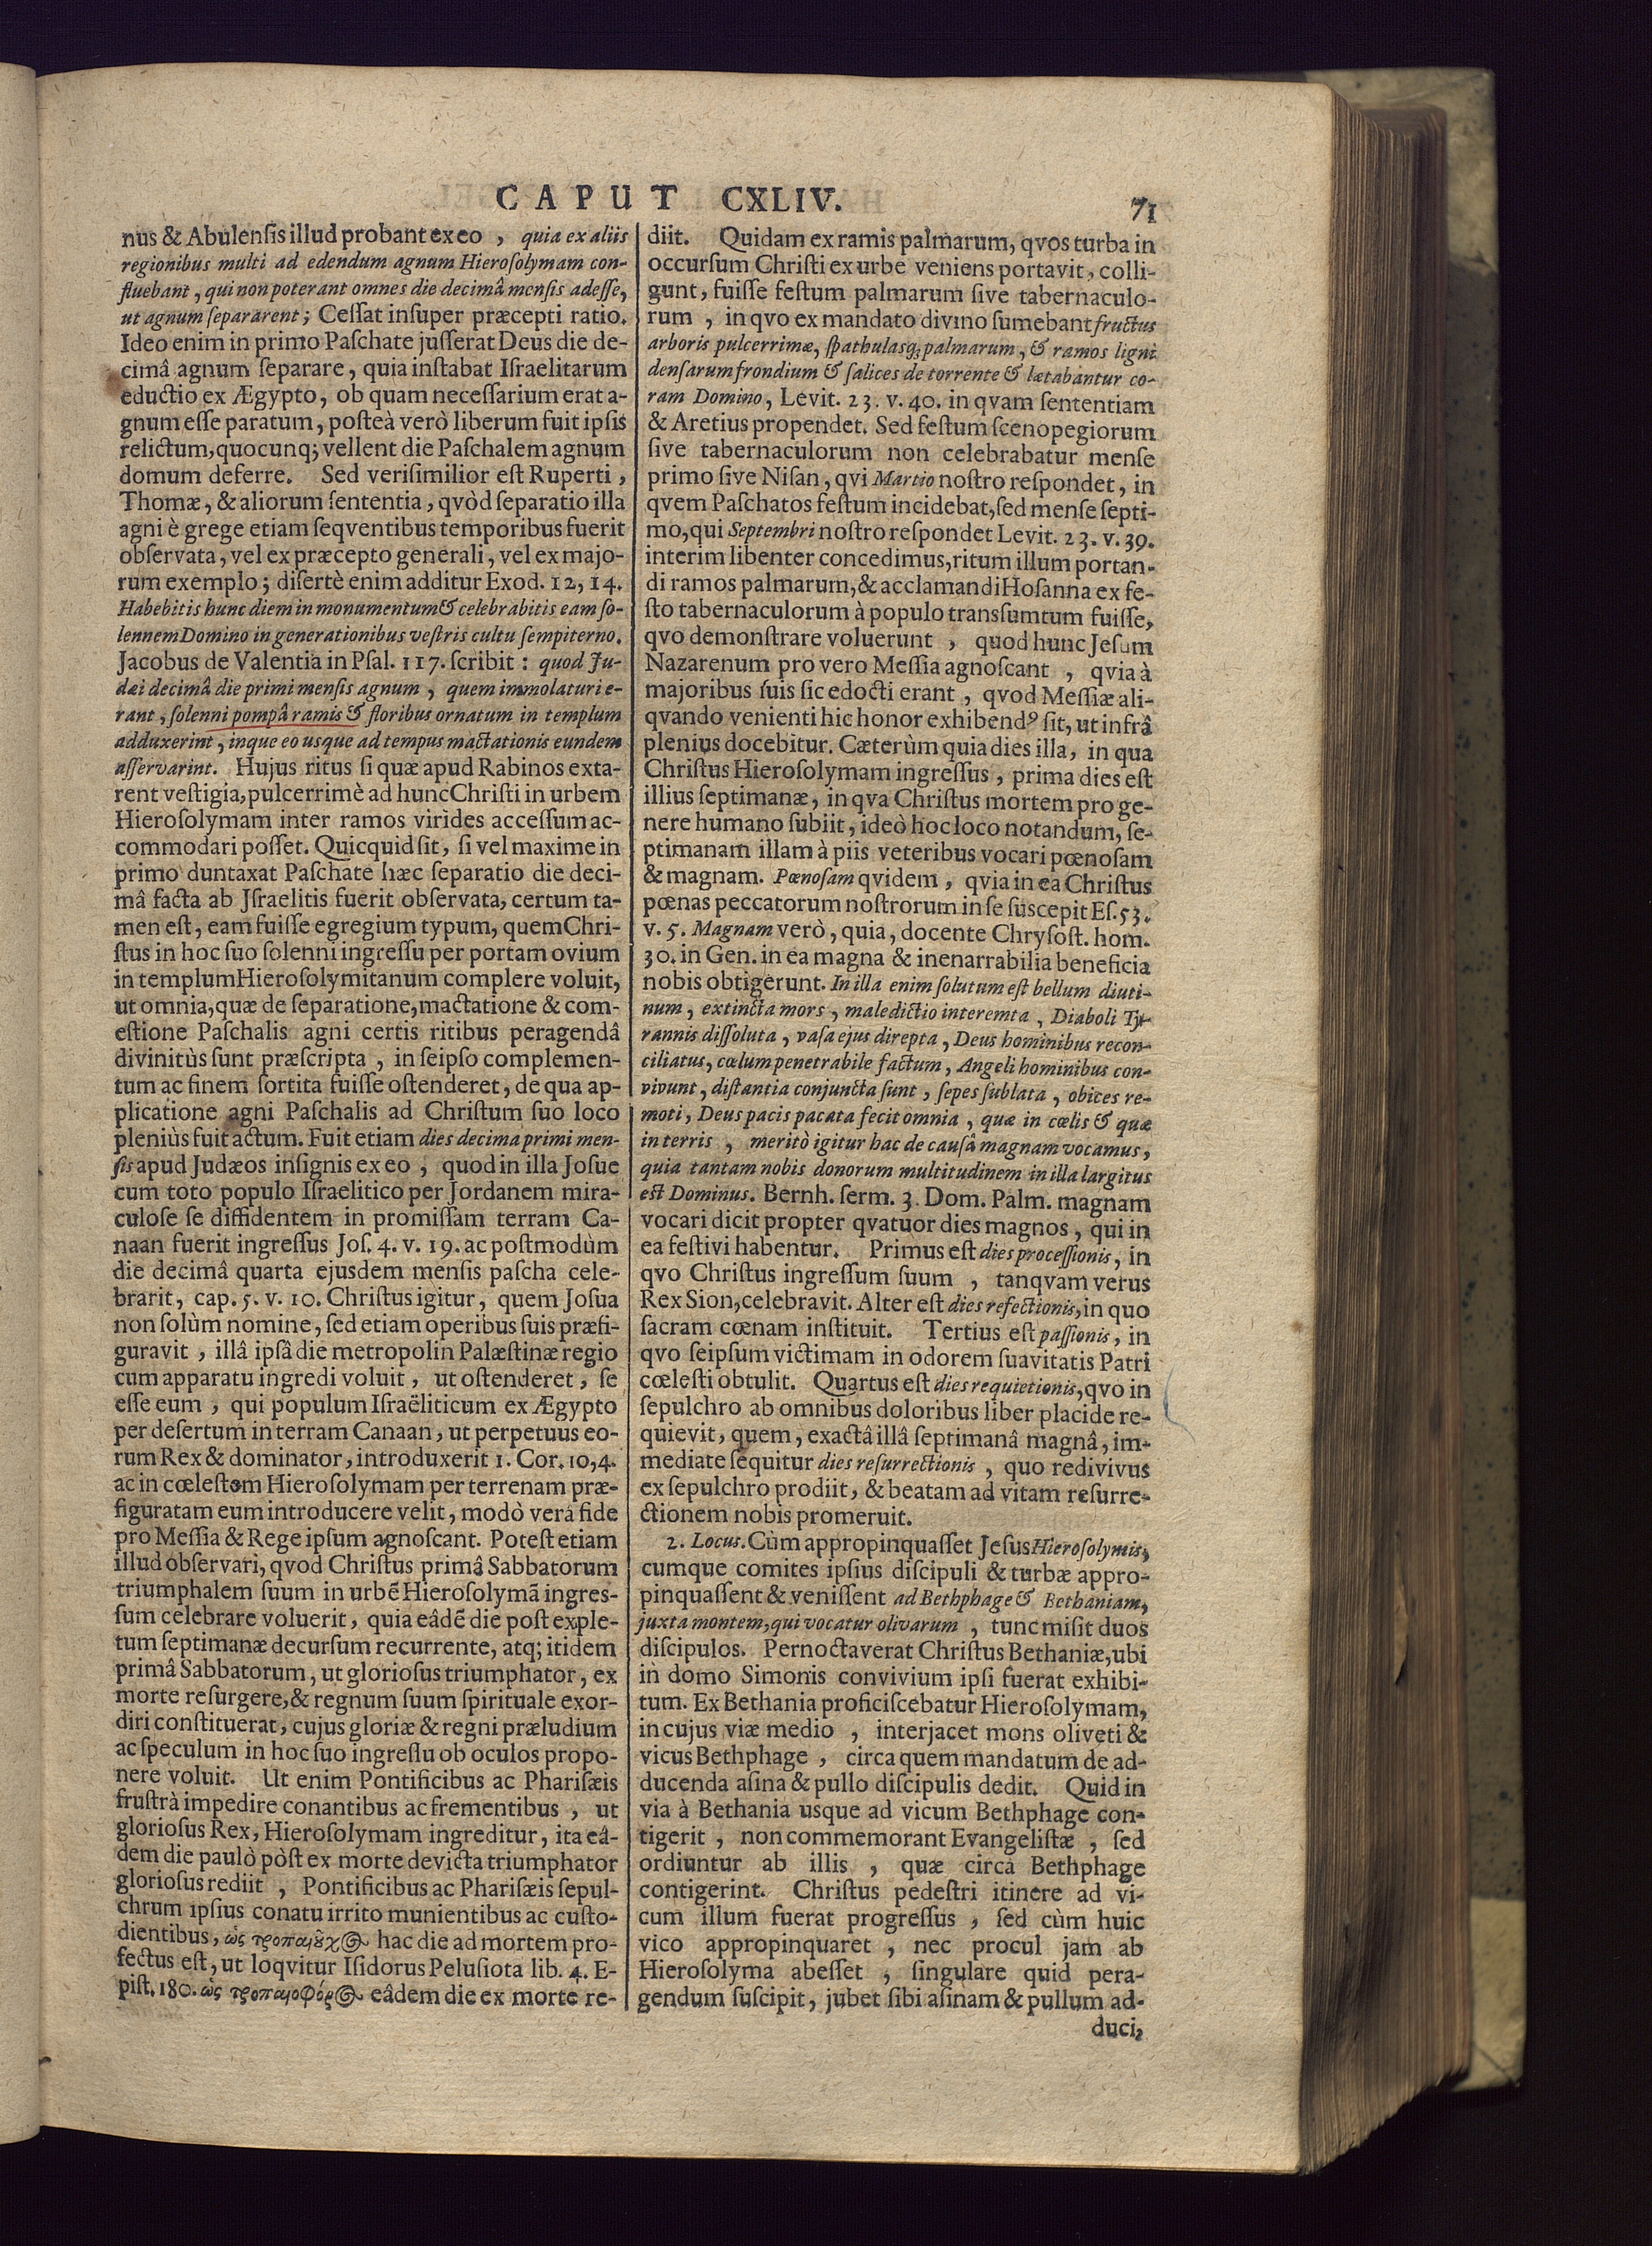 CAPUT CXLIV. 71
nus & Abulenſis illud probant ex eo, quia ex aliis
regionibus multi ad edendum agnum Hieroſolymam con-
fluebant, qui non poterant omnes die decimâ menſis adeſſe,
ut agnum ſepararent; Ceſſat inſuper præcepti ratio.
Ideo enim in primo Paſchate juſſerat Deus die de-
cimâ agnum ſeparare, quia inſtabat Iſraelitarum
eductio ex Ægypto, ob quam neceſſarium erat a-
gnum eſſe paratum, poſteà verò liberum fuit ipſis
relictum, quocunq; vellent die Paſchalem agnum
domum deferre. Sed veriſimilior eſt Ruperti,
Thomæ, & aliorum ſententia, qvòd ſeparatio illa
agni è grege etiam ſeqventibus temporibus fuerit
obſervata, vel ex præcepto generali, vel ex majo-
rum exemplo; diſertè enim additur Exod. 12, 14.
Habebitis hunc diem in monumentum & celebrabitis eam ſo-
lennem Domino in generationibus veſtris cultu ſempiterno.
Jacobus de Valentia in Pſal. 117. ſcribit: quod Ju-
dæi decimâ die primi menſis agnum, quem immolaturi e-
rant, ſolenni pompâ ramis & floribus ornatum in templum
adduxerint, inque eo usque ad tempus mactationis eundem
aſſervarint. Hujus ritus ſi quæ apud Rabinos exta-
rent veſtigia, pulcerrimè ad hunc Chriſti in urbem
Hieroſolymam inter ramos virides acceſſum ac-
commodari poſſet. Quicquid ſit, ſi vel maxime in
primo duntaxat Paſchate hæc ſeparatio die deci-
mâ facta ab Jſraelitis fuerit obſervata, certum ta-
men eſt, eam fuiſſe egregium typum, quem Chri-
ſtus in hoc ſuo ſolenni ingreſſu per portam ovium
in templum Hieroſolymitanum complere voluit,
ut omnia, quæ de ſeparatione, mactatione & com-
eſtione Paſchalis agni certis ritibus peragendâ
divinitùs ſunt præſcripta, in ſeipſo complemen-
tum ac finem ſortita fuiſſe oſtenderet, de qua ap-
plicatione agni Paſchalis ad Chriſtum ſuo loco
pleniùs fuit actum. Fuit etiam dies decima primi men-
ſis apud Judæos inſignis ex eo, quod in illa Joſue
cum toto populo Iſraelitico per Jordanem mira-
culoſe ſe diffidentem in promiſſam terram Ca-
naan fuerit ingreſſus Joſ. 4. v. 19. ac poſtmodùm
die decimâ quarta ejusdem menſis paſcha cele-
brarit, cap. 5. v. 10. Chriſtus igitur, quem Joſua
non ſolùm nomine, ſed etiam operibus ſuis præfi-
guravit, illâ ipſâ die metropolin Palæſtinæ regio
cum apparatu ingredi voluit, ut oſtenderet, ſe
eſſe eum, qui populum Iſraëliticum ex Ægypto
per deſertum in terram Canaan, ut perpetuus eo-
rum Rex & dominator, introduxerit 1. Cor. 10,4.
ac in cœleſtem Hieroſolymam per terrenam præ-
figuratam eum introducere velit, modò verâ fide
pro Meſſia & Rege ipſum agnoſcant. Poteſt etiam
illud obſervari, qvod Chriſtus primâ Sabbatorum
triumphalem ſuum in urbẽ Hieroſolymã ingreſ-
ſum celebrare voluerit, quia eâdẽ die poſt exple-
tum ſeptimanæ decurſum recurrente, atq; itidem
primâ Sabbatorum, ut glorioſus triumphator, ex
morte reſurgere, & regnum ſuum ſpirituale exor-
diri conſtituerat, cujus gloriæ & regni præludium
ac ſpeculum in hoc ſuo ingreſſu ob oculos propo-
nere voluit. Ut enim Pontificibus ac Phariſæis
fruſtrà impedire conantibus ac frementibus, ut
glorioſus Rex, Hieroſolymam ingreditur, ita eâ-
dem die paulò pòſt ex morte devicta triumphator
glorioſus rediit, Pontificibus ac Phariſæis ſepul-
chrum ipſius conatu irrito munientibus ac cuſto-
dientibus, ὡς τροπαιȣ͂χ  hac die ad mortem pro-
fectus eſt, ut loqvitur Iſidorus Peluſiota lib. 4. E-
piſt. 180. ὡς τροπαιοφόρ  eâdem die ex morte re-
diit. Quidam ex ramis palmarum, qvos turba in
occurſum Chriſti ex urbe veniens portavit, colli-
gunt, fuiſſe feſtum palmarum ſive tabernaculo-
rum, in qvo ex mandato divino ſumebant fructus
arboris pulcerrimæ, ſpathulasq; palmarum, & ramos ligni
denſarum frondium & ſalices de torrente & lætabantur co-
ram Domino, Levit. 23. v. 40. in qvam ſententiam
& Aretius propendet. Sed feſtum ſcenopegiorum
ſive tabernaculorum non celebrabatur menſe
primo ſive Niſan, qvi Martio noſtro reſpondet, in
qvem Paſchatos feſtum incidebat, ſed menſe ſepti-
mo, qui Septembri noſtro reſpondet Levit. 23. v. 39.
interim libenter concedimus, ritum illum portan-
di ramos palmarum, & acclamandi Hoſanna ex fe-
ſto tabernaculorum à populo transſumtum fuiſſe,
qvo demonſtrare voluerunt, quod hunc Jeſum
Nazarenum pro vero Meſſia agnoſcant, qvia à
majoribus ſuis ſic edocti erant, qvod Meſſiæ ali-
qvando venienti hic honor exhibendꝰ ſit, ut infrâ
plenius docebitur. Cæterùm quia dies illa, in qua
Chriſtus Hieroſolymam ingreſſus, prima dies eſt
illius ſeptimanæ, in qva Chriſtus mortem pro ge-
nere humano ſubiit, ideò hoc loco notandum, ſe-
ptimanam illam à piis veteribus vocari pœnoſam
& magnam. Pœnoſam qvidem, qvia in ea Chriſtus
pœnas peccatorum noſtrorum in ſe ſuscepit Eſ. 53.
v. 5. Magnam verò, quia, docente Chryſoſt. hom.
30. in Gen. in ea magna & inenarrabilia beneficia
nobis obtigerunt. In illa enim ſolutum eſt bellum diuti-
num, extincta mors, maledictio interemta, Diaboli Ty-
rannis diſſoluta, vaſa ejus direpta, Deus hominibus recon-
ciliatus, cœlum penetrabile factum, Angeli hominibus con-
vivunt, diſtantia conjuncta ſunt, ſepes ſublata, obices re-
moti, Deus pacis pacata fecit omnia, quæ in cœlis & quæ
in terris, meritò igitur hac de cauſâ magnam vocamus,
quia tantam nobis donorum multitudinem in illa largitus
eſt Dominus. Bernh. ſerm. 3. Dom. Palm. magnam
vocari dicit propter qvatuor dies magnos, qui in
ea feſtivi habentur. Primus eſt dies proceſſionis, in
qvo Chriſtus ingreſſum ſuum, tanqvam verus
Rex Sion, celebravit. Alter eſt dies refectionis, in quo
ſacram cœnam inſtituit. Tertius eſt paſſionis, in
qvo ſeipſum victimam in odorem ſuavitatis Patri
cœleſti obtulit. Quartus eſt dies requietionis, qvo in
ſepulchro ab omnibus doloribus liber placide re-
quievit, quem, exactâ illâ ſeptimanâ magnâ, im-
mediate ſequitur dies reſurrectionis, quo redivivus
ex ſepulchro prodiit, & beatam ad vitam reſurre-
ctionem nobis promeruit.
2. Locus. Cùm appropinquaſſet Jeſus Hieroſolymis,
cumque comites ipſius diſcipuli & turbæ appro-
pinquaſſent & veniſſent ad Bethphage & Bethaniam,
juxta montem, qui vocatur olivarum, tunc miſit duos
diſcipulos. Pernoctaverat Chriſtus Bethaniæ, ubi
in domo Simonis convivium ipſi fuerat exhibi-
tum. Ex Bethania proficiſcebatur Hieroſolymam,
in cujus viæ medio, interjacet mons oliveti &
vicus Bethphage, circa quem mandatum de ad-
ducenda aſina & pullo diſcipulis dedit. Quid in
via à Bethania usque ad vicum Bethphage con-
tigerit, non commemorant Evangeliſtæ, ſed
ordiuntur ab illis, quæ circa Bethphage
contigerint. Chriſtus pedeſtri itinere ad vi-
cum illum fuerat progreſſus, ſed cùm huic
vico appropinquaret, nec procul jam ab
Hieroſolyma abeſſet, ſingulare quid pera-
gendum ſuſcipit, jubet ſibi aſinam & pullum ad-
duci,